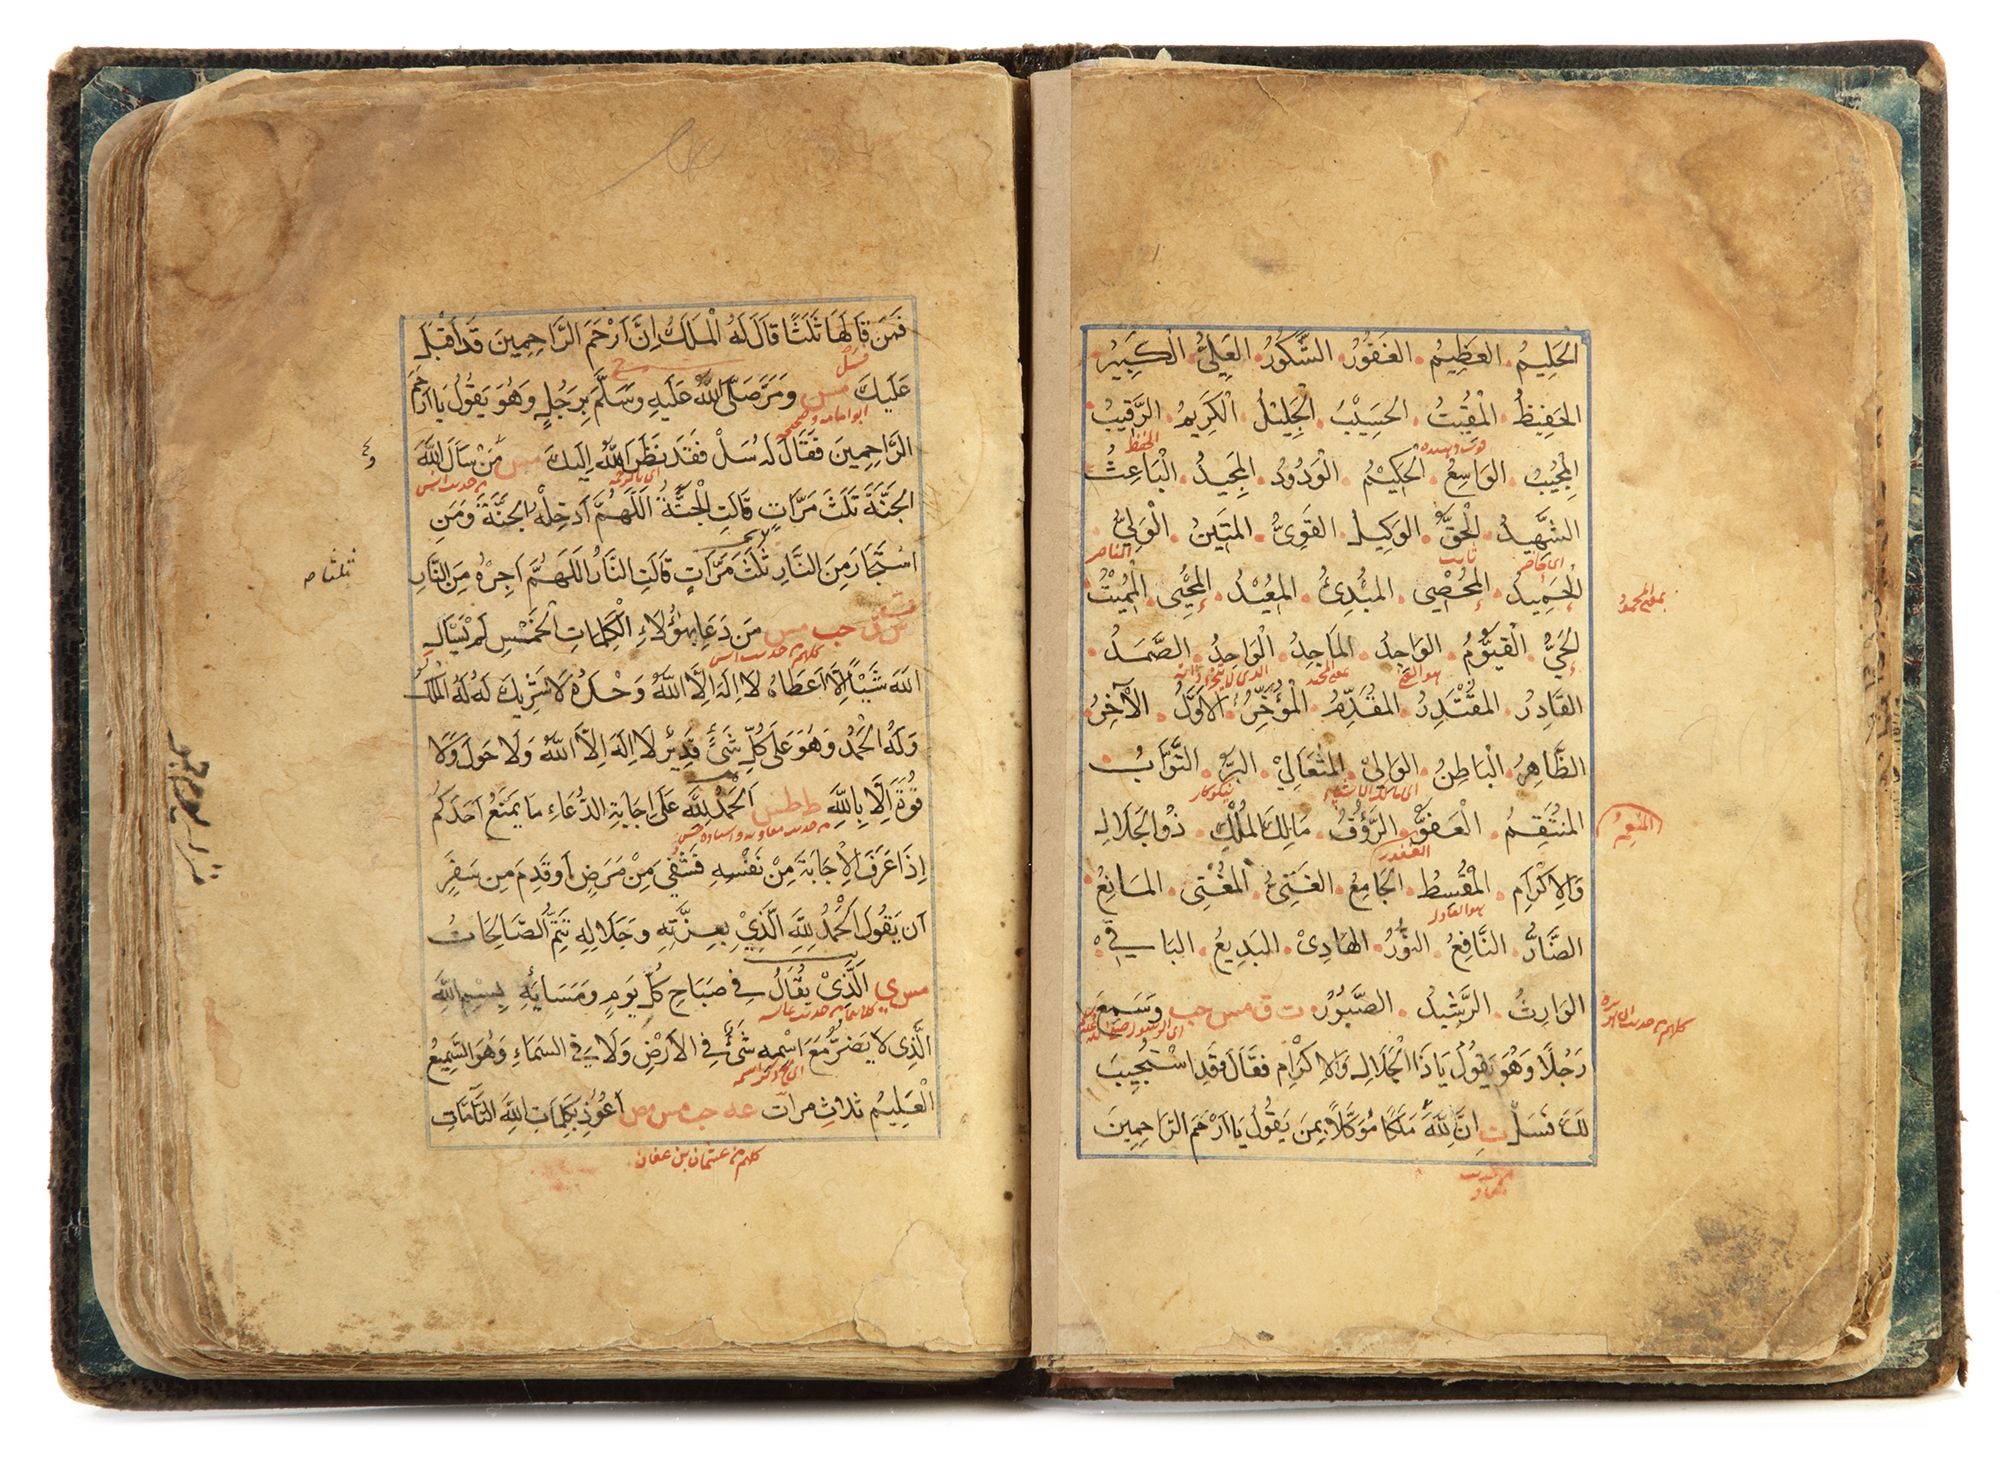 الحَلِيمُ . العَظِيمُ . الغَفُورُ . الشَّكُورُ . العَلِيُّ . الكَبِيرُ .
الحَفِيظُ . المُقِيتُ . الحَسِيبُ . الجَلِيلُ . الكَرِيمُ . الرَّقِيبُ
المُجِيبُ . الوَاسِعُ . الحَكِيمُ . الوَدُودُ . المَجِيدُ . البَاعِثُ
الشَّهِيدُ . الحَقُّ . الوَكِيلُ . القَوِيُّ . المَتِينُ . الوَلِيُّ
الحَمِيدُ . المُحْصِي . المُبْدِئُ . المُعِيْدُ . المُحْيِي . المُمِيتُ
بمعنى المحمود
الحَيُّ . القَيُّومُ . الوَاجِدُ . المَاجِدُ . الوَاحِدُ . الصَّمَدُ .
القَادِرُ . المُقْتَدِرُ . المُقَدِّمُ . المُؤَخِّرُ . الأَوَّلُ . الآخِرُ
الظَّاهِرُ . البَاطِنُ . الوَالِيْ . المُتَعَالِيْ . البَرُّ . التَّوَّابُ
نيكوكار
المُنْتَقِمُ . العَفُوُّ . الرَّؤُفُ . مَالِكُ المُلْكِ . ذُو الجَلَالِ
المنعم
الغفور
وَالاِكْرَامِ . المُقْسِطُ . الجَامِعُ . الغَنِيُّ . المُغْنِي . المَانِعُ
هو العادل
الضَّارُّ . النَّافِعُ . النُّوْرُ . الهَادِيْ . البَدِيعُ . البَاقِي .
الوَارِثُ . الرَّشِيدُ . الصَّبُوْرُ . ت ق مس حب وَسَمِعَ
رَجُلًا وَهُوَ يَقُولُ يَا ذَا الجَلَالِ وَالاِكْرَامِ فَقَالَ قَدِ اسْتُجِيبَ
لَكَ فَسَلْ ت اِنَّ لِلّٰهِ مَلَكًا مُوَكَّلًا بِمَنْ يَقُولُ يَا اَرْحَمَ الرَّاحِمِينَ
فَمَنْ قَالَهَا ثَلٰثًا قَالَ لَهُ المَلَكُ اِنَّ اَرْحَمَ الرَّاحِمِينَ قَدْ اَقْبَلَ
عَلَيْكَ مس وَمَرَّ صَلَّى اللّٰهُ عَلَيْهِ وَسَلَّمَ بِرَجُلٍ وَهُوَ يَقُولُ يَا اَرْحَمَ
الرَّاحِمِينَ فَقَالَ لَهُ سَلْ فَقَدْ نَظَرَ اللّٰهُ اِلَيْكَ مس مَنْ سَاَلَ اللّٰهَ
الجَنَّةَ ثَلٰثَ مَرَّاتٍ قَالَتِ الجَنَّةُ اَللّٰهُمَّ اَدْخِلْهُ الجَنَّةَ وَمَنِ
اسْتَجَارَ مِنَ النَّارِ ثَلٰثَ مَرَّاتٍ قَالَتِ النَّارُ اللّٰهُمَّ اَجِرْهُ مِنَ النَّارِ
س ق حب مس مَنْ دَعَا بِهٰؤُلَاءِ الكَلِمَاتِ الخَمْسِ لَمْ يَسْاَلِ
اللّٰهَ شَيْئًا اِلَّا اَعْطَاهُ لَا اِلٰهَ اِلَّا اللّٰهُ وَحْدَهُ لَا شَرِيكَ لَهُ لَهُ المُلْكُ
وَلَهُ الحَمْدُ وَهُوَ عَلَى كُلِّ شَيْءٍ قَدِيْرٌ لَا اِلٰهَ اِلَّا اللّٰهُ وَلَا حَوْلَ وَلَا
قُوَّةَ اِلَّا بِاللّٰهِ ط طس اَلحَمْدُ لِلّٰهِ عَلَى اِجَابَةِ الدُّعَاءِ مَا يَمْنَعُ اَحَدَكُمْ
اِذَا عَرَفَ الاِجَابَةَ مِنْ نَفْسِهِ فَشُفِيَ مِنْ مَرَضٍ اَوْ قَدِمَ مِنْ سَفَرٍ
اَنْ يَقُولَ الحَمْدُ لِلّٰهِ الَّذِيْ بِعِزَّتِهِ وَجَلَالِهِ تَتِمُّ الصَّالِحَاتُ
مس ي الَّذِيْ يُقَالُ فِي صَبَاحِ كُلِّ يَوْمٍ وَمَسَائِهِ بِسْمِ اللّٰهِ
الَّذِي لَا يَضُرُّ مَعَ اسْمِهِ شَيْءٌ فِي الاَرْضِ وَلَا فِي السَّمَاءِ وَهُوَ السَّمِيعُ
العَلِيمُ ثَلاثَ مرات عه حب مس مص اَعُوْذُ بِكَلِمَاتِ اللّٰهِ التَّامَّاتِ
كلهم من عثمان بن عفان